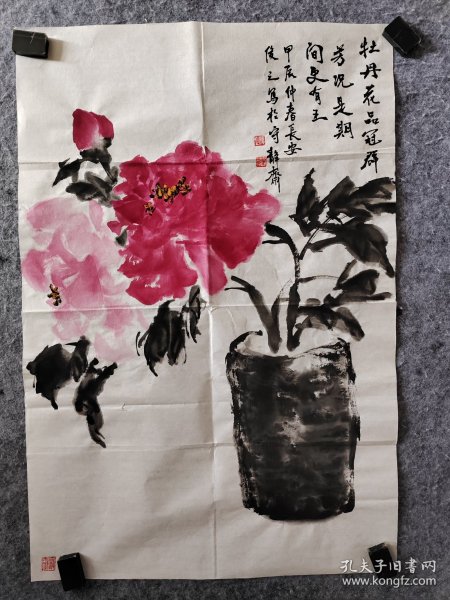 牡丹花品冠群
芳况是期
间更有王
甲辰仲春长安
侯之写於守静斋
孔夫子旧书网
www.kongfz.com